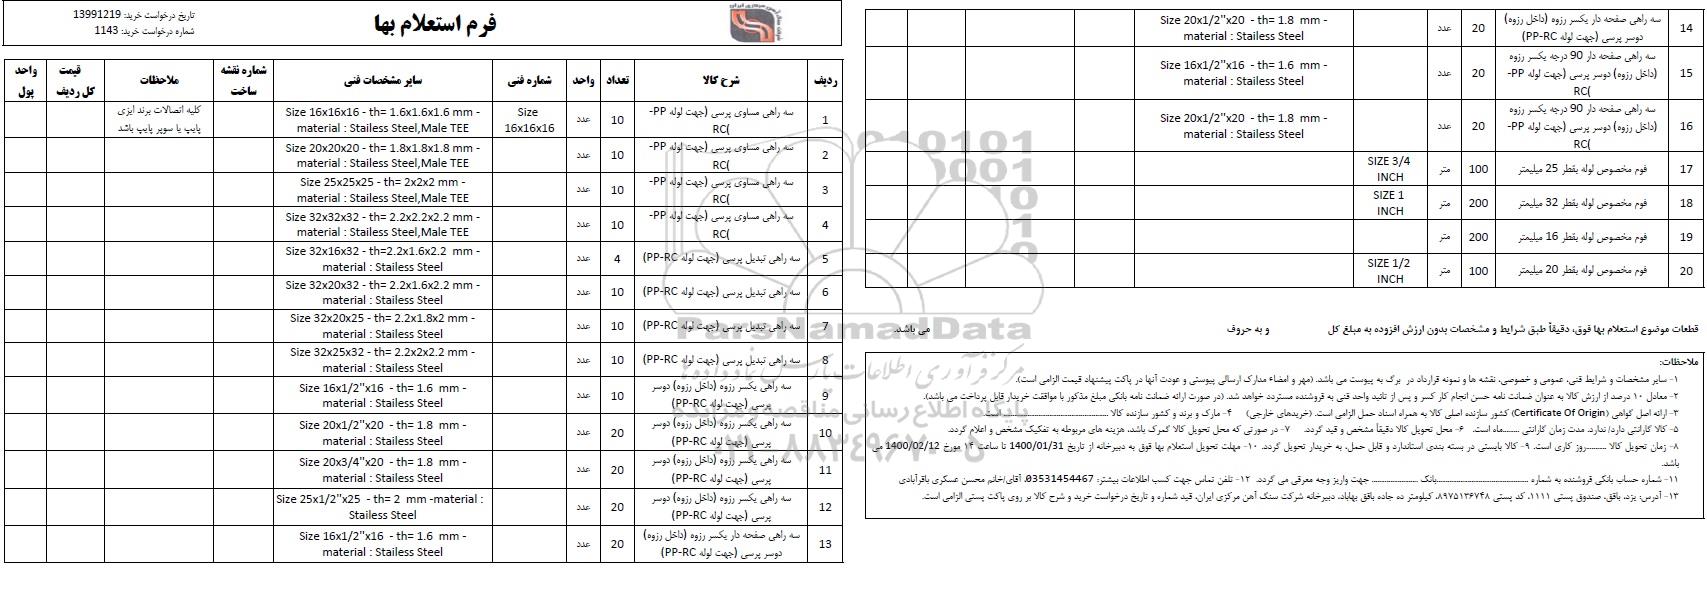 فرم استعلام بها
تاریخ درخواست خرید: 13991219
شماره درخواست خرید: 1143
ردیف شرح کالا تعداد واحد شماره فنی سایر مشخصات فنی شماره نقشه ساخت ملاحظات قیمت کل ردیف واحد پول
1 سه راهی مساوی پرسی (جهت لوله PP-RC) 10 عدد Size 16x16x16 Size 16x16x16 - th= 1.6x1.6x1.6 mm - material : Stailess Steel,Male TEE کلیه اتصالات برند ایزی پایپ یا سوپر پایپ باشد
2 سه راهی مساوی پرسی (جهت لوله PP-RC) 10 عدد Size 20x20x20 - th= 1.8x1.8x1.8 mm - material : Stailess Steel,Male TEE
3 سه راهی مساوی پرسی (جهت لوله PP-RC) 10 عدد Size 25x25x25 - th= 2x2x2 mm - material : Stailess Steel,Male TEE
4 سه راهی مساوی پرسی (جهت لوله PP-RC) 10 عدد Size 32x32x32 - th= 2.2x2.2x2.2 mm - material : Stailess Steel,Male TEE
5 سه راهی تبدیل پرسی (جهت لوله PP-RC) 4 عدد Size 32x16x32 - th=2.2x1.6x2.2 mm - material : Stailess Steel
6 سه راهی تبدیل پرسی (جهت لوله PP-RC) 10 عدد Size 32x20x32 - th= 2.2x1.6x2.2 mm - material : Stailess Steel
7 سه راهی تبدیل پرسی (جهت لوله PP-RC) 10 عدد Size 32x20x25 - th= 2.2x1.8x2 mm - material : Stailess Steel
8 سه راهی تبدیل پرسی (جهت لوله PP-RC) 10 عدد Size 32x25x32 - th= 2.2x2x2.2 mm - material : Stailess Steel
9 سه راهی یکسر رزوه (داخل رزوه) دوسر پرسی (جهت لوله PP-RC) 10 عدد Size 16x1/2"x16 - th= 1.6 mm - material : Stailess Steel
10 سه راهی یکسر رزوه (داخل رزوه) دوسر پرسی (جهت لوله PP-RC) 20 عدد Size 20x1/2"x20 - th= 1.8 mm - material : Stailess Steel
11 سه راهی یکسر رزوه (داخل رزوه) دوسر پرسی (جهت لوله PP-RC) 20 عدد Size 20x3/4"x20 - th= 1.8 mm - material : Stailess Steel
12 سه راهی یکسر رزوه (داخل رزوه) دوسر پرسی (جهت لوله PP-RC) 20 عدد Size 25x1/2"x25 - th= 2 mm -material : Stailess Steel
13 سه راهی صفحه دار یکسر رزوه (داخل رزوه) دوسر پرسی (جهت لوله PP-RC) 20 عدد Size 16x1/2"x16 - th= 1.6 mm - material : Stailess Steel
14 سه راهی صفحه دار یکسر رزوه (داخل رزوه) دوسر پرسی (جهت لوله PP-RC) 20 عدد Size 20x1/2"x20 - th= 1.8 mm - material : Stailess Steel
15 سه راهی صفحه دار 90 درجه یکسر رزوه (داخل رزوه) دوسر پرسی (جهت لوله PP-RC) 20 عدد Size 16x1/2"x16 - th= 1.6 mm - material : Stailess Steel
16 سه راهی صفحه دار 90 درجه یکسر رزوه (داخل رزوه) دوسر پرسی (جهت لوله PP-RC) 20 عدد Size 20x1/2"x20 - th= 1.8 mm - material : Stailess Steel
17 فوم مخصوص لوله بقطر 25 میلیمتر 100 متر SIZE 3/4 INCH
18 فوم مخصوص لوله بقطر 32 میلیمتر 200 متر SIZE 1 INCH
19 فوم مخصوص لوله بقطر 16 میلیمتر 200 متر
20 فوم مخصوص لوله بقطر 20 میلیمتر 100 متر SIZE 1/2 INCH
قطعات موضوع استعلام بها فوق، دقیقاً طبق شرایط و مشخصات بدون ارزش افزوده به مبلغ کل و به حروف می باشد.
ملاحظات:
۱- سایر مشخصات و شرایط فنی، عمومی و خصوصی، نقشه ها و نمونه قرارداد در برگ به پیوست می باشد. (مهر و امضاء مدارک ارسالی پیوستی و عودت آنها در پاکت پیشنهاد قیمت الزامی است).
۲- معادل ۱۰ درصد از ارزش کالا به عنوان ضمانت نامه حسن انجام کار کسر و پس از تائید واحد فنی به فروشنده مسترد خواهد شد. (در صورت ارائه ضمانت نامه بانکی مبلغ مذکور با موافقت خریدار قابل پرداخت می باشد).
۳- ارائه اصل گواهی (Certificate Of Origin) کشور سازنده اصلی کالا به همراه اسناد حمل الزامی است. (خریدهای خارجی) ۴- مارک و برند و کشور سازنده کالا .......... است.
۵- کالا گارانتی دارد/ ندارد. مدت زمان گارانتی ........ماه است. ۶- محل تحویل کالا دقیقاً مشخص و قید گردد. ۷- در صورتی که محل تحویل کالا گمرک باشد، هزینه های مربوطه به تفکیک مشخص و اعلام گردد.
۸- زمان تحویل کالا ..........روز کاری است. ۹- کالا بایستی در بسته بندی استاندارد و قابل حمل، به خریدار تحویل گردد. ۱۰- مهلت تحویل استعلام بها فوق به دبیرخانه از تاریخ 1400/01/31 تا ساعت ۱۴ مورخ 1400/02/12 می باشد.
۱۱- شماره حساب بانکی فروشنده به شماره ..........بانک .......... جهت واریز وجه معرفی می گردد. ۱۲- تلفن تماس جهت کسب اطلاعات بیشتر: 03531454467، آقای/خانم محسن عسکری باقرآبادی
۱۳- آدرس: یزد، بافق، صندوق پستی ۱۱۱۱، کد پستی ۸۹۷۵۱۳۶۷۴۸، کیلومتر ده جاده بافق بهاباد، دبیرخانه شرکت سنگ آهن مرکزی ایران، قید شماره و تاریخ درخواست خرید و شرح کالا بر روی پاکت پستی الزامی است.
ParsNamadData
مرکز فرآوری اطلاعات پارس نماد داده ها
پایگاه اطلاع رسانی مناقصه و مزایده
۰۲۱-۸۸۳۴۹۶۷۰-۵